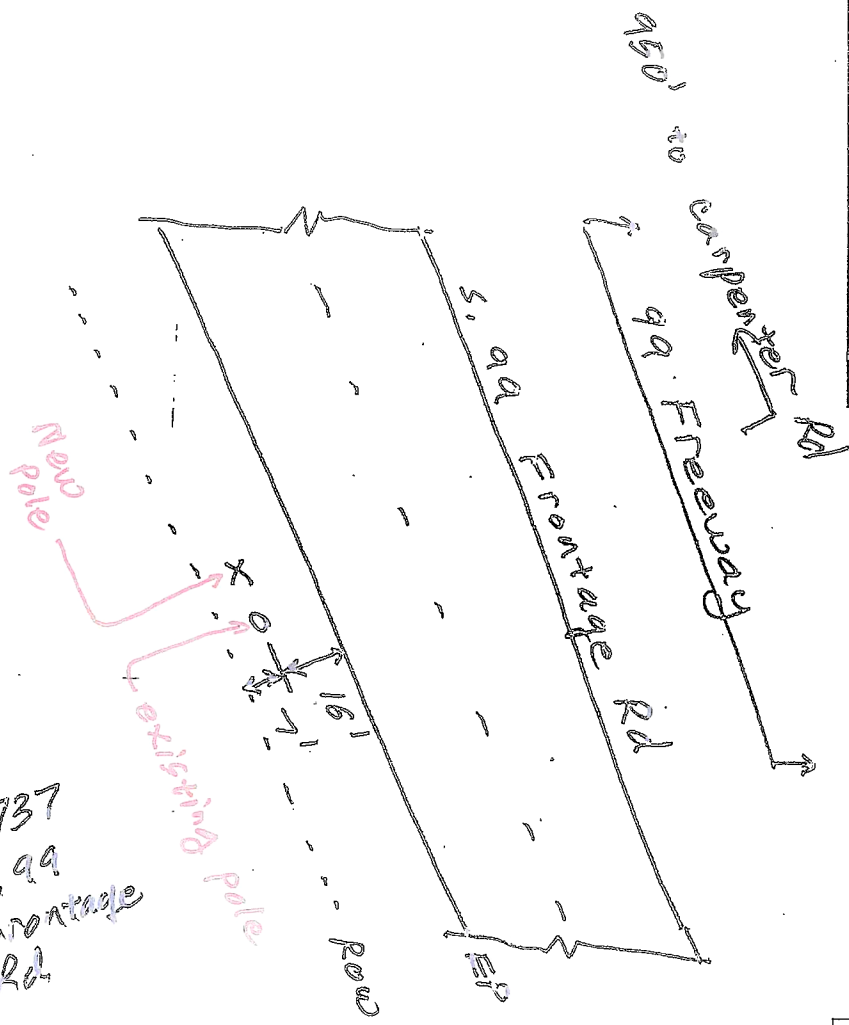 950' to carpenter Rd
99 Freeway
S. 99 Frontage Rd
16'
7'
New
pole
existing pole
ROW
EP
737
99
Frontage
Rd